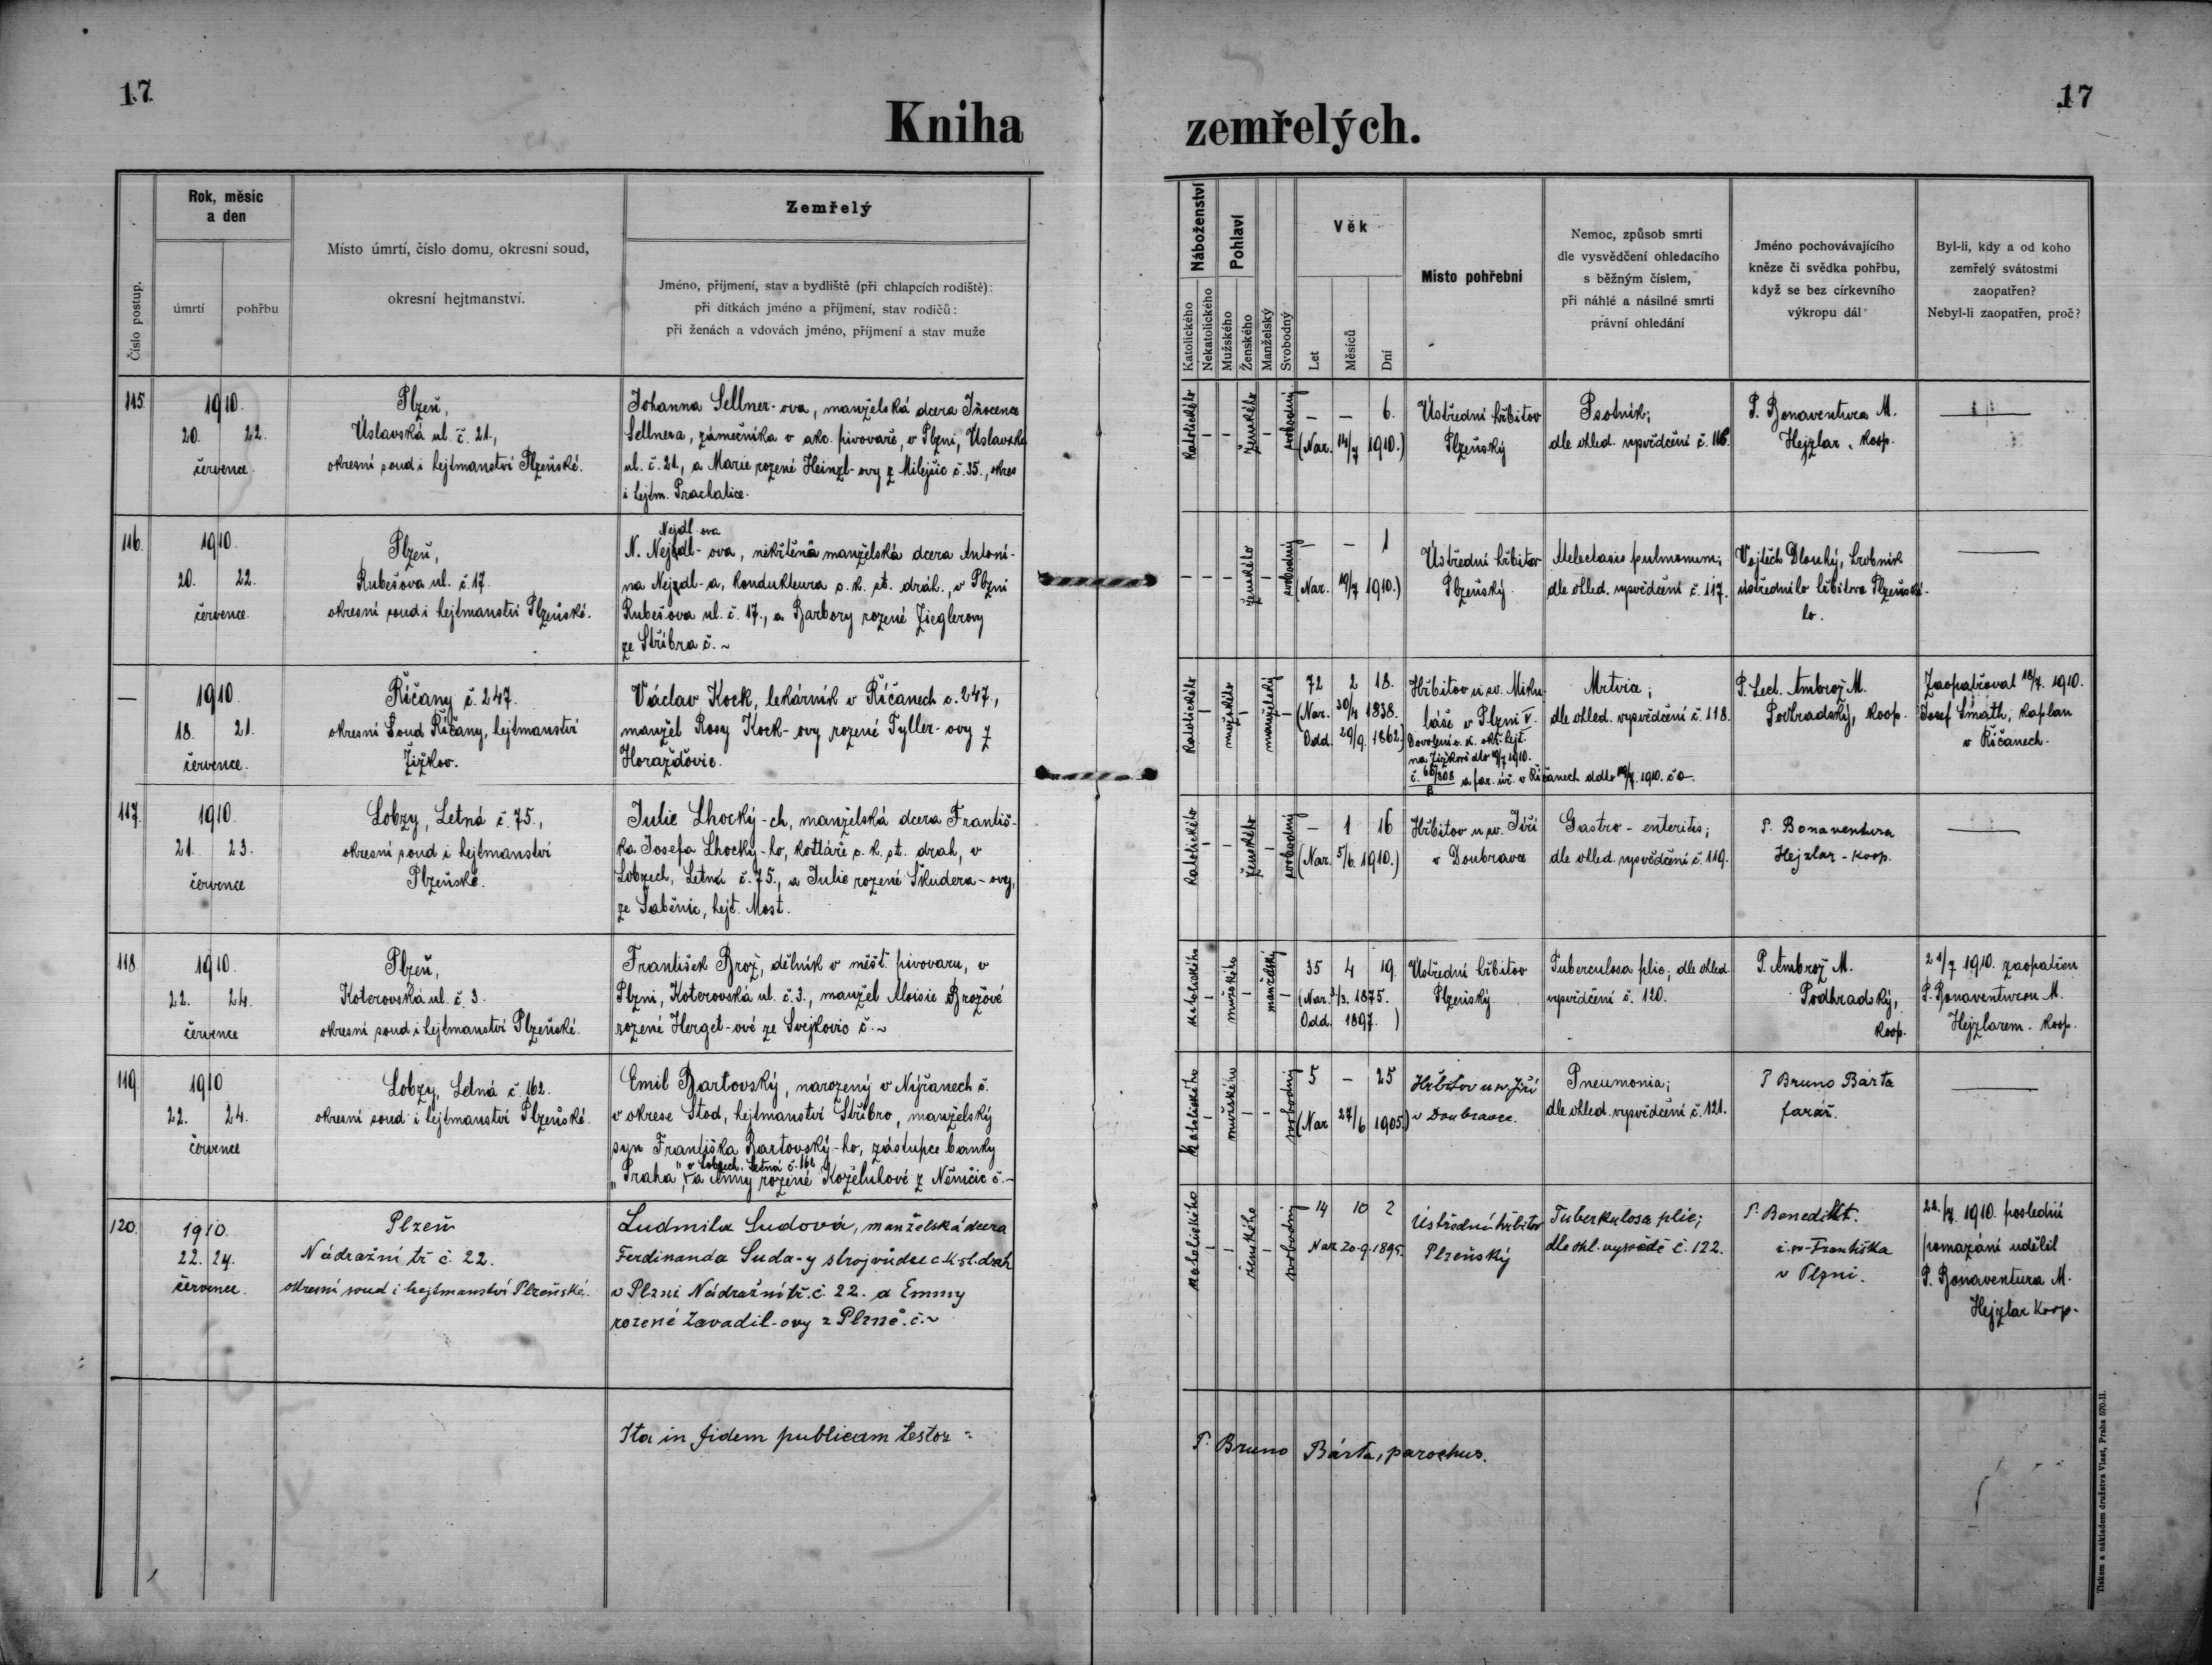 17
17
Kniha zemřelých.
Číslo postup.
Rok, měsíc
a den
úmrtí
pohřbu
Místo úmrtí, číslo domu, okresní soud,
okresní hejtmanství.
Zemřelý
Jméno, příjmení, stav a bydliště (při chlapcích rodiště):
při dítkách jméno a příjmení, stav rodičů:
při ženách a vdovách jméno, příjmení a stav muže
Náboženství
Katolického
Nekatolického
Pohlaví
Mužského
Ženského
Manželský
Svobodný
Věk
Let
Měsíců
Dní
Místo pohřební
Nemoc, způsob smrti
dle vysvědčení ohledacího
s běžným číslem,
při náhlé a násilné smrti
právní ohledání
Jméno pochovávajícího
kněze či svědka pohřbu,
když se bez církevního
výkropu dál
Byl-li, kdy a od koho
zemřelý svátostmi
zaopatřen?
Nebyl-li zaopatřen, proč?
115.
1910.
20. 22.
července.
Plzeň,
Úslavská ul. č. 21.,
okresní soud i hejtmanství Plzeňské.
Johanna Sellner-ova, manželská dcera Inocence
Sellnera, zámečníka v akc. pivovaře, v Plzni, Úslavská
ul. č. 21., a Marie rozené Heinzl-ovy z Milejčic č. 35., okres
i hejtm. Prachatice.
katolického
–
–
ženského
–
svobodný
– – 6.
(Nar. 14/7 1910.)
Ústřední hřbitov
Plzeňský
Psotník;
dle ohled. vysvědčení č. 116.
P. Bonaventura M.
Hejzlar, koop.
116.
1910.
20. 22.
července.
Plzeň,
Rubešova ul. č. 17.
okresní soud i hejtmanství Plzeňské.
Nejdl-ova
N. Nejzdl-ova, nekřtěná manželská dcera Antoní-
na Nejzdl-a, kondukteura c. k. st. dráh., v Plzni
Rubešova ul. č. 17., a Barbory rozené Zieglerovy
ze Stříbra č. ~
–
–
–
ženského
–
svobodný
– – 1
(Nar. 19/7 1910.)
Ústřední hřbitov
Plzeňský.
Atelectasis pulmonum;
dle ohled. vysvědčení č. 117.
Vojtěch Dlouhý, hrobník
ústředního hřbitova Plzeňské-
ho.
—
1910.
18. 21.
července.
Říčany č. 247.
okresní Soud Říčany, hejtmanství
Žižkov.
Václav Kock, lekárník v Říčanech č. 247.,
manžel Rosy Kock-ovy rozené Tyller-ovy z
Horažďovic.
katolického
–
mužského
–
manželský
–
72 2 18.
(Nar. 30/4 1838.
Odd. 29/9. 1862.)
Hřbitov u sv. Miku-
láše v Plzni V.
Dovolení c. k. okr. hejt.
na Žižkově dto 19/7 1910.
a far. úř. v Říčanech ddto 19/7. 1910. č 0.
Mrtvice;
dle ohled. vysvědčení č. 118.
P. Lect. Ambrož M.
Podhradský, koop.
Zaopatřoval 18/7. 1910.
Josef Šmath, kaplan
v Říčanech.
117.
1910.
21. 23.
července
Lobzy, Letná č. 75.,
okresní soud i hejtmanství
Plzeňské.
Julie Lhocký-ch, manželská dcera Františ-
ka Josefa Lhocký-ho, kotláře c. k. st. drah, v
Lobzech, Letná č. 75., a Julie rozené Škudera-ovej,
ze Saběnic, hejt. Most.
katolického
–
–
ženského
–
svobodný
– 1 16
(Nar. 5/6. 1910.)
Hřbitov u sv. Jiří
v Doubravce
Gastro-enteritis;
dle ohled. vysvědčení č. 119.
P. Bonaventura
Hejzlar-koop.
118.
1910.
22. 24.
července
Plzeň,
Koterovská ul. č. 3.
okresní soud i hejtmanství Plzeňské.
František Brož, dělník v měšt. pivovaru, v
Plzni, Koterovská ul. č. 3., manžel Aloisie Brožové
rozené Herget-ové ze Svejkovic č. ~
katolického
–
mužského
–
manželský
–
35 4 19.
(Nar. 3/3. 1875.
Odd. 1897.)
Ústřední hřbitov
Plzeňský
Tuberculosa plic; dle ohled.
vysvědčení č. 120.
P. Ambrož M.
Podhradský,
koop.
21/7 1910. zaopatřen
P. Bonaventurou M.
Hejzlarem. koop.
119.
1910
22. 24.
července
Lobzy, Letná č. 162.
okresní soud i hejtmanství Plzeňské.
Emil Bartovský, narozený v Nýřanech č.
v okrese Stod, hejtmanství Stříbro, manželský
syn Františka Bartovský-ho, zástupce banky
v Lobzech. Letná č. 162
„Praha", a Anny rozené Koželuhové z Němčic č. –
katolického
–
mužského
–
–
svobodný
5 – 25
(Nar 27/6 1905.)
Hřbitov u sv. Jiří
v Doubravce.
Pneumonia;
dle ohled. vysvědčení č. 121.
P Bruno Bárta
farář.
120.
1910.
22. 24.
července.
Plzeň
Nádražní tř. č. 22.
okresní soud i hejtmanství Plzeňské.
Ludmila Sudová, manželská dcera
Ferdinanda Suda-y strojvůdce c.k. st. drah
v Plzni Nádražní tř. č. 22. a Emmy
rozené Zavadil-ovy z Plzně. č. ~
katolického
–
–
ženského
–
svobodný
14 10 2
Nar 20-9. 1895.
Ústřední hřbitov
Plzeňský
Tuberkulosa plic;
dle ohl. vysvědč č. 122.
P. Benedikt.
v Plzni.
22./7. 1910. poslední
pomazání udělil
P. Bonaventura M.
Hejzlar koop.
Ita in fidem publicam testor:
P. Bruno Bárta, parochus.
Tiskem a nákladem družstva Vlast, Praha 570-II.